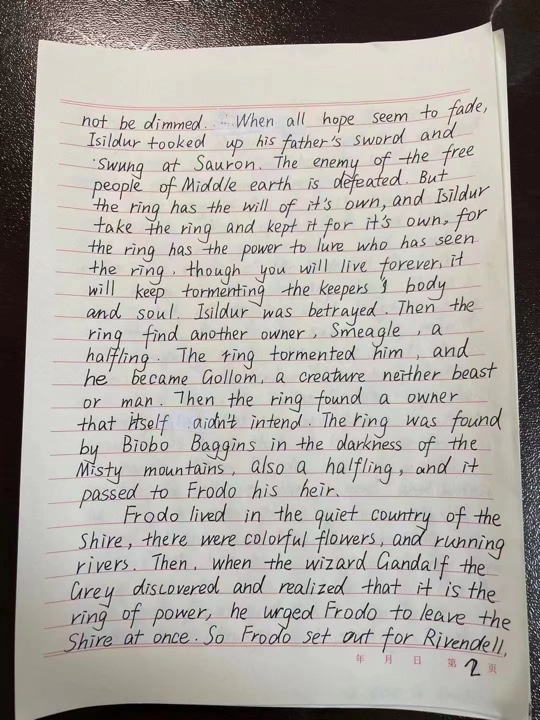 not be dimmed. When all hope seem to fade,
Isildur tooked up his father's sword and
swung at Sauron. The enemy of the free
people of Middle earth is defeated. But
the ring has the will of it's own, and Isildur
take the ring and kept it for it's own, for
the ring has the power to lure who has seen
the ring. though you will live forever, it
will keep tormenting the keepers's body
and soul. Isildur was betrayed. Then the
ring find another owner, Smeagle, a
halfling. The ring tormented him, and
he became Gollom, a creature neither beast
or man. Then the ring found a owner
that itself didn't intend. The ring was found
by Biobo Baggins in the darkness of the
Misty mountains, also a halfling, and it
passed to Frodo his heir.
Frodo lived in the quiet country of the
Shire, there were colorful flowers, and running
rivers. Then, when the wizard Gandalf the
Grey discovered and realized that it is the
ring of power, he urged Frodo to leave the
Shire at once. So Frodo set out for Rivendell,
年 月 日 第 2 页